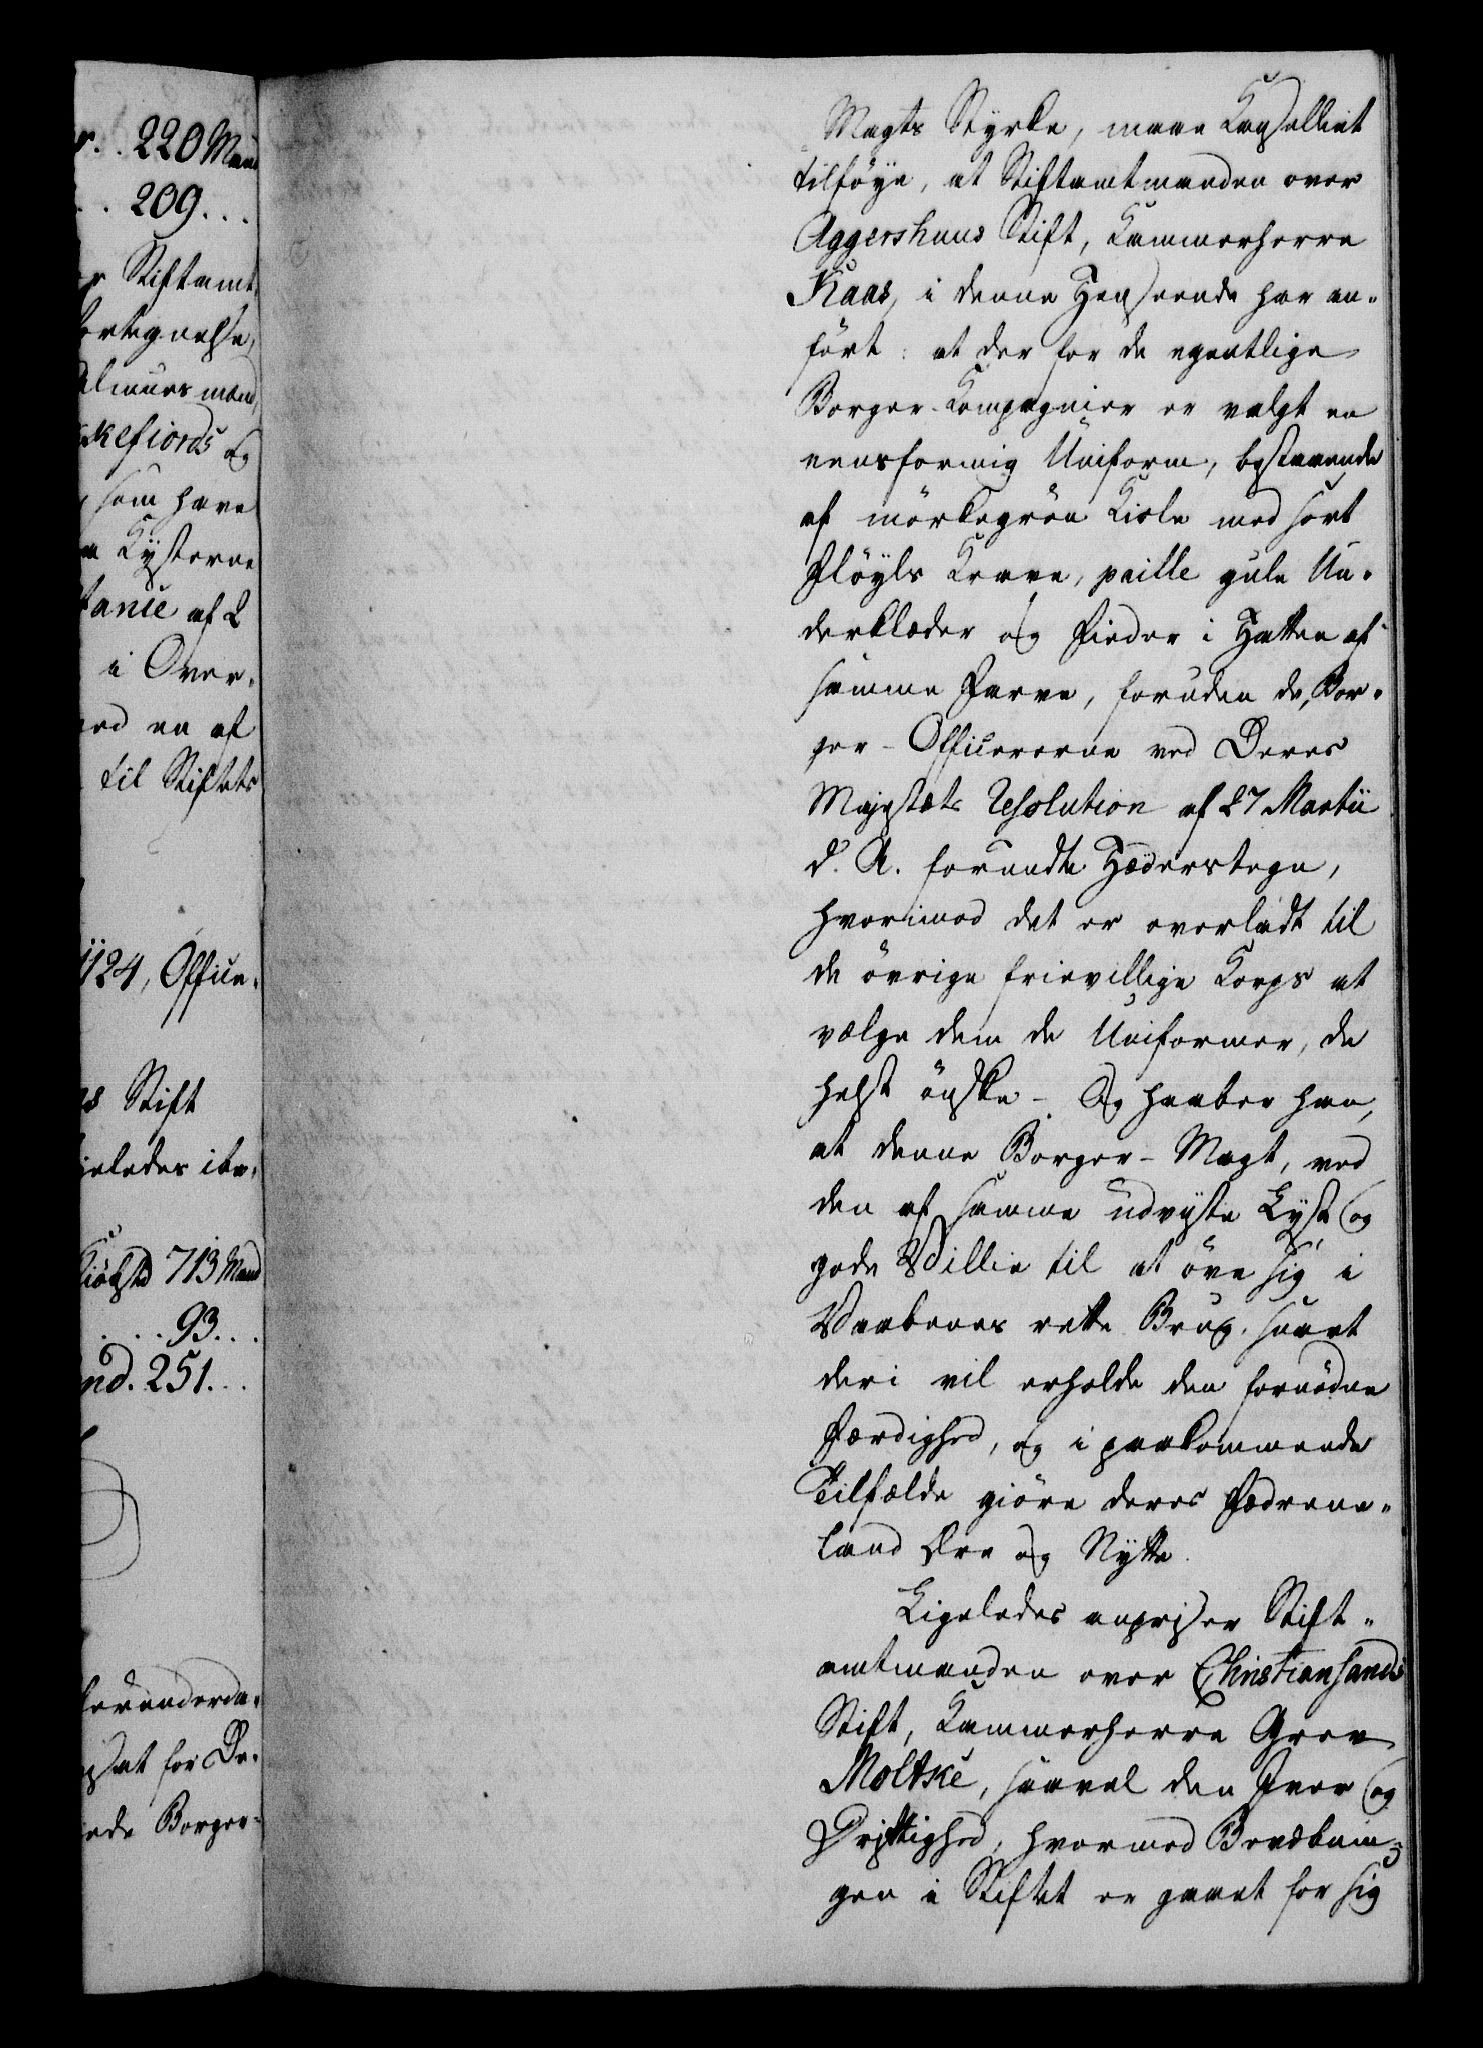 r. . 220 Mand
. . 209. . .
r Stiftamt-
fortegnelse,
almues mænd,
kefiords og
som have
n Kysterne
tance af 2
i Over-
ed en af
til Stiftets
1124, Office-
s Stift
geledes ibe-
Kiöbsted 713 Mand
. . . 93. . .
nd. 251. . .
lerunderda-
sat for De-
ede Borger-
Magts Styrke, maae Kancelliet
tilföye, at Stiftamtmanden over
Aggershuus Stift, Kammerherre
Kaas, i denne Henseende har an-
fört: at der for de egentlige
Borger-Kompagnier er valgt en
eensformig Uniform, bestaaende
af mörkegrön Kiole med sort
Flöyls Krave, paille gule Un-
derklæder og Fieder i Hatten af
samme Farve, foruden de, Bor-
ger-Officererne ved Deres
Majestæts Resolution af 27 Martii
d. A. forundte Hæderstegn,
hvorimod det er overladt til
de övrige frievillige Korps at
vælge dem de Uniformer, de
helst önske - Og haaber han,
at denne Borger-Magt, ved
den af samme udviiste Lyst og
gode Villie til at öve sig i
Vaabenes rette Brug, snart
deri vil erholde den fornödne
Færdighed, og i paakommende
Tilfælde giöre deres Fædrene-
land Ære og Nytte.
Ligeledes anpriser Stift-
amtmanden over Christiansands
Stift, Kammerherre Grev
Moltke, saavel den Iver og
Driftighed, hvormed Bevæbnin-
gen i Stiftet er gaaet for sig